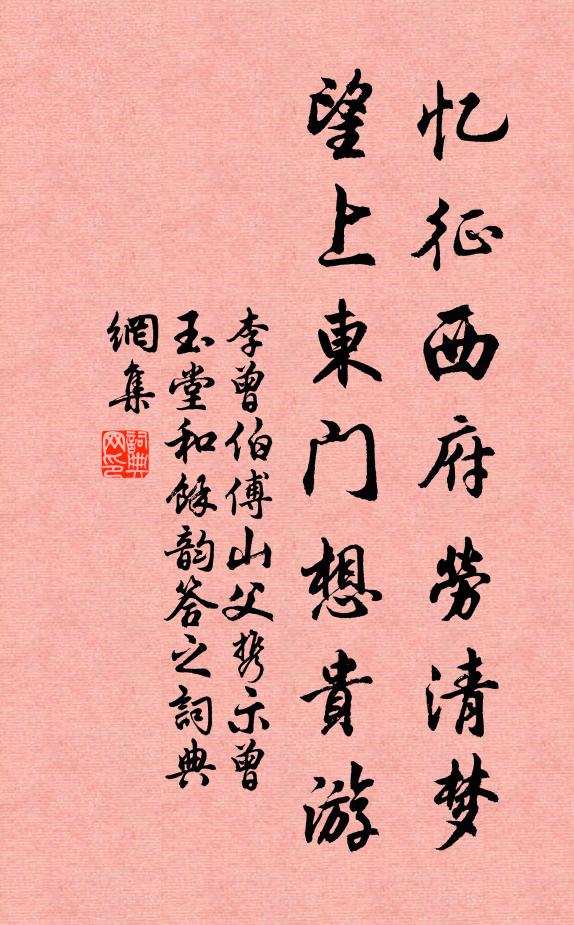 忆征西府劳清梦
望上東门想貴游
李曾伯傅山父携示曾
玉堂和馀韵答之詞典
網集
詞典网印